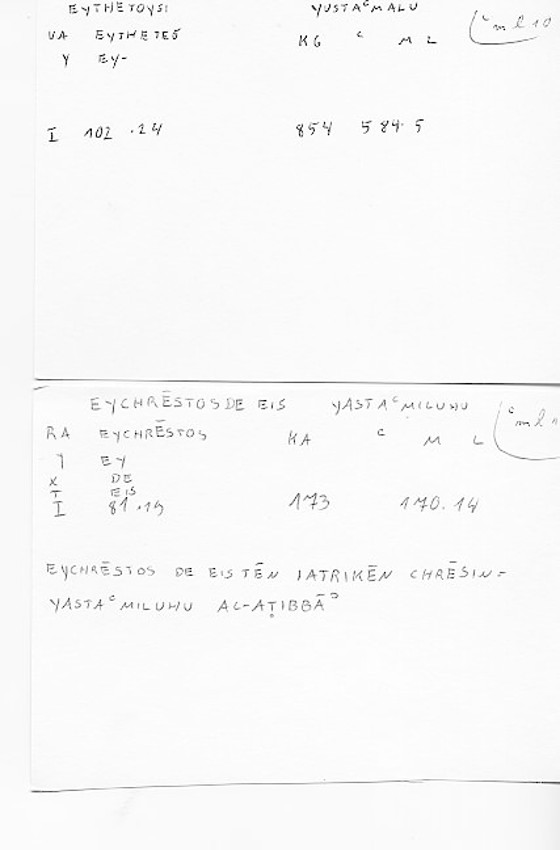 EYTHETOYSI YUSTAᶜMALU (ᶜml 10
VA EYTHETES KG ᶜ M L
Y EY-
I 102 .24 854 584.5
EYCHRĒSTOS DE EIS YASTAᶜMILUHU (ᶜml
RA EYCHRĒSTOS KA ᶜ M L
Y EY
X DE
T EIS
I 81.19 173 170.14
EYCHRĒSTOS DE EIS TĒN IATRIKĒN CHRĒSIN =
YASTAᶜMILUHU AL-AṬIBBĀᵓ